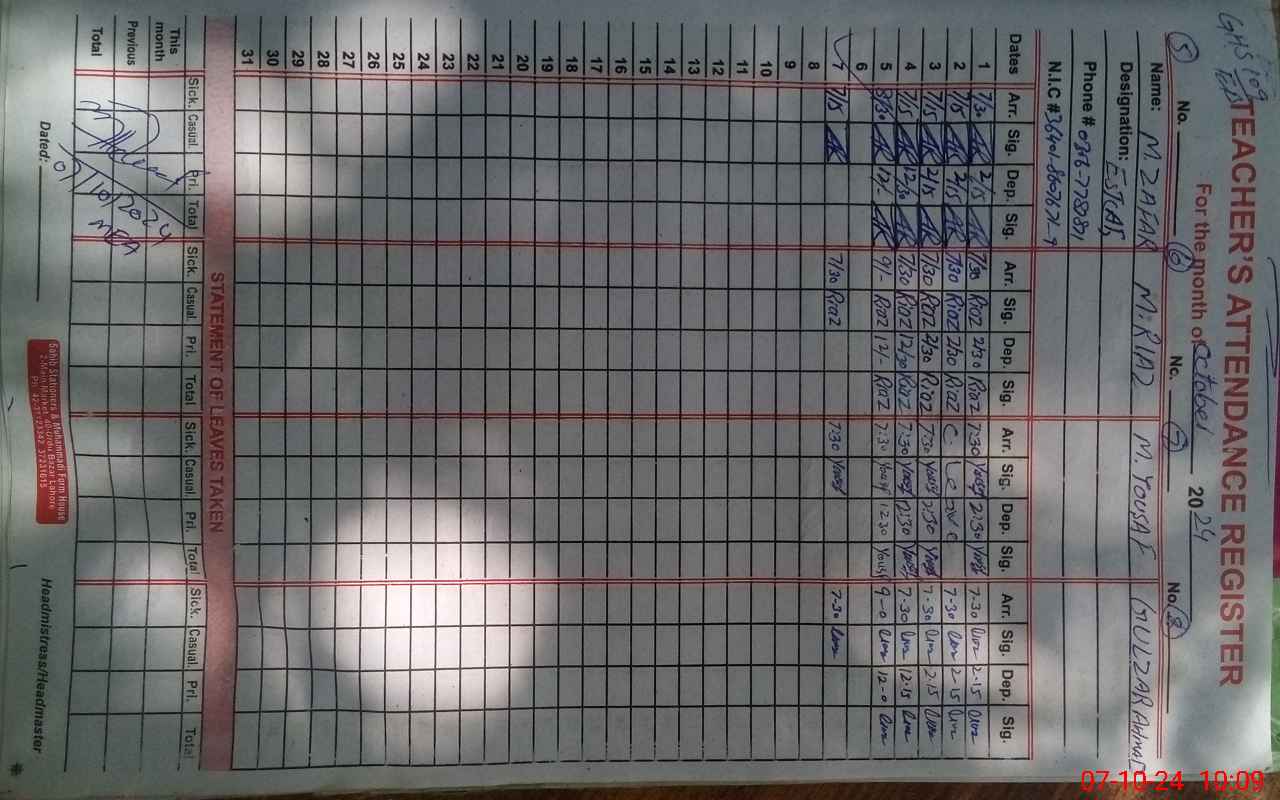 GHS 109
TEACHER'S ATTENDANCE REGISTER
For the month of October 2024
5 No. 6 No. 7 No. 8
Name: M. ZAFAR M. RIAZ M. YOUSAF GULZAR AHMAD
Designation:
Phone #
N.I.C #
Dates Arr. Sig. Dep. Sig. Arr. Sig. Dep. Sig. Arr. Sig. Dep. Sig. Arr. Sig. Dep. Sig.
1 7/30 2/15 7/30 Riaz 2/30 Riaz 7:30 Yousf 2:30 Yousf 7-30 2-15
2 7/15 2/15 7/30 Riaz 2/30 Riaz C. Leave 7-30 2-15
3 7/15 2/15 7/30 Riaz 2/30 Riaz 7:30 Yousf 2:30 Yousf 7-30 2.15
4 7/15 12/30 7/30 Riaz 12/30 Riaz 7:30 Yousf 2:30 Yousf 7-30 12.15
5 8/30 12/- 9/- Riaz 12/- Riaz 7:30 Yousf 12:30 Yousf 9-0 12-0
6
7 7/15 7/30 Riaz 7:30 Yousf 7-30
8
9
10
11
12
13
14
15
16
17
18
19
20
21
22
23
24
25
26
27
28
29
30
31
STATEMENT OF LEAVES TAKEN
Sick. Casual. Pri. Total Sick. Casual. Pri. Total Sick. Casual. Pri. Total Sick. Casual. Pri. Total
This month
Previous
Total
07/10/2024
MEA
Dated:
Sahib Stationers & Muhammadi Form House
2-Main Market, 40-Urdu Bazar Lahore
Headmistress/Headmaster
07-10-24 10:09